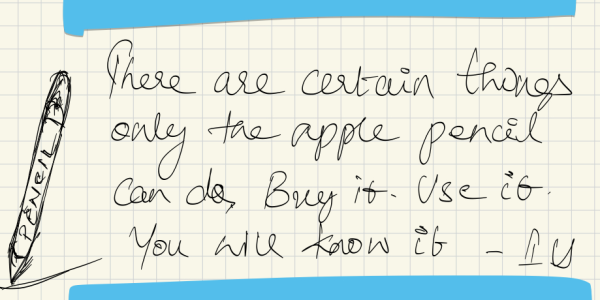 There are certain things
only the apple pencil
can do, Buy it. Use it.
You will know it - IU
PENCIL